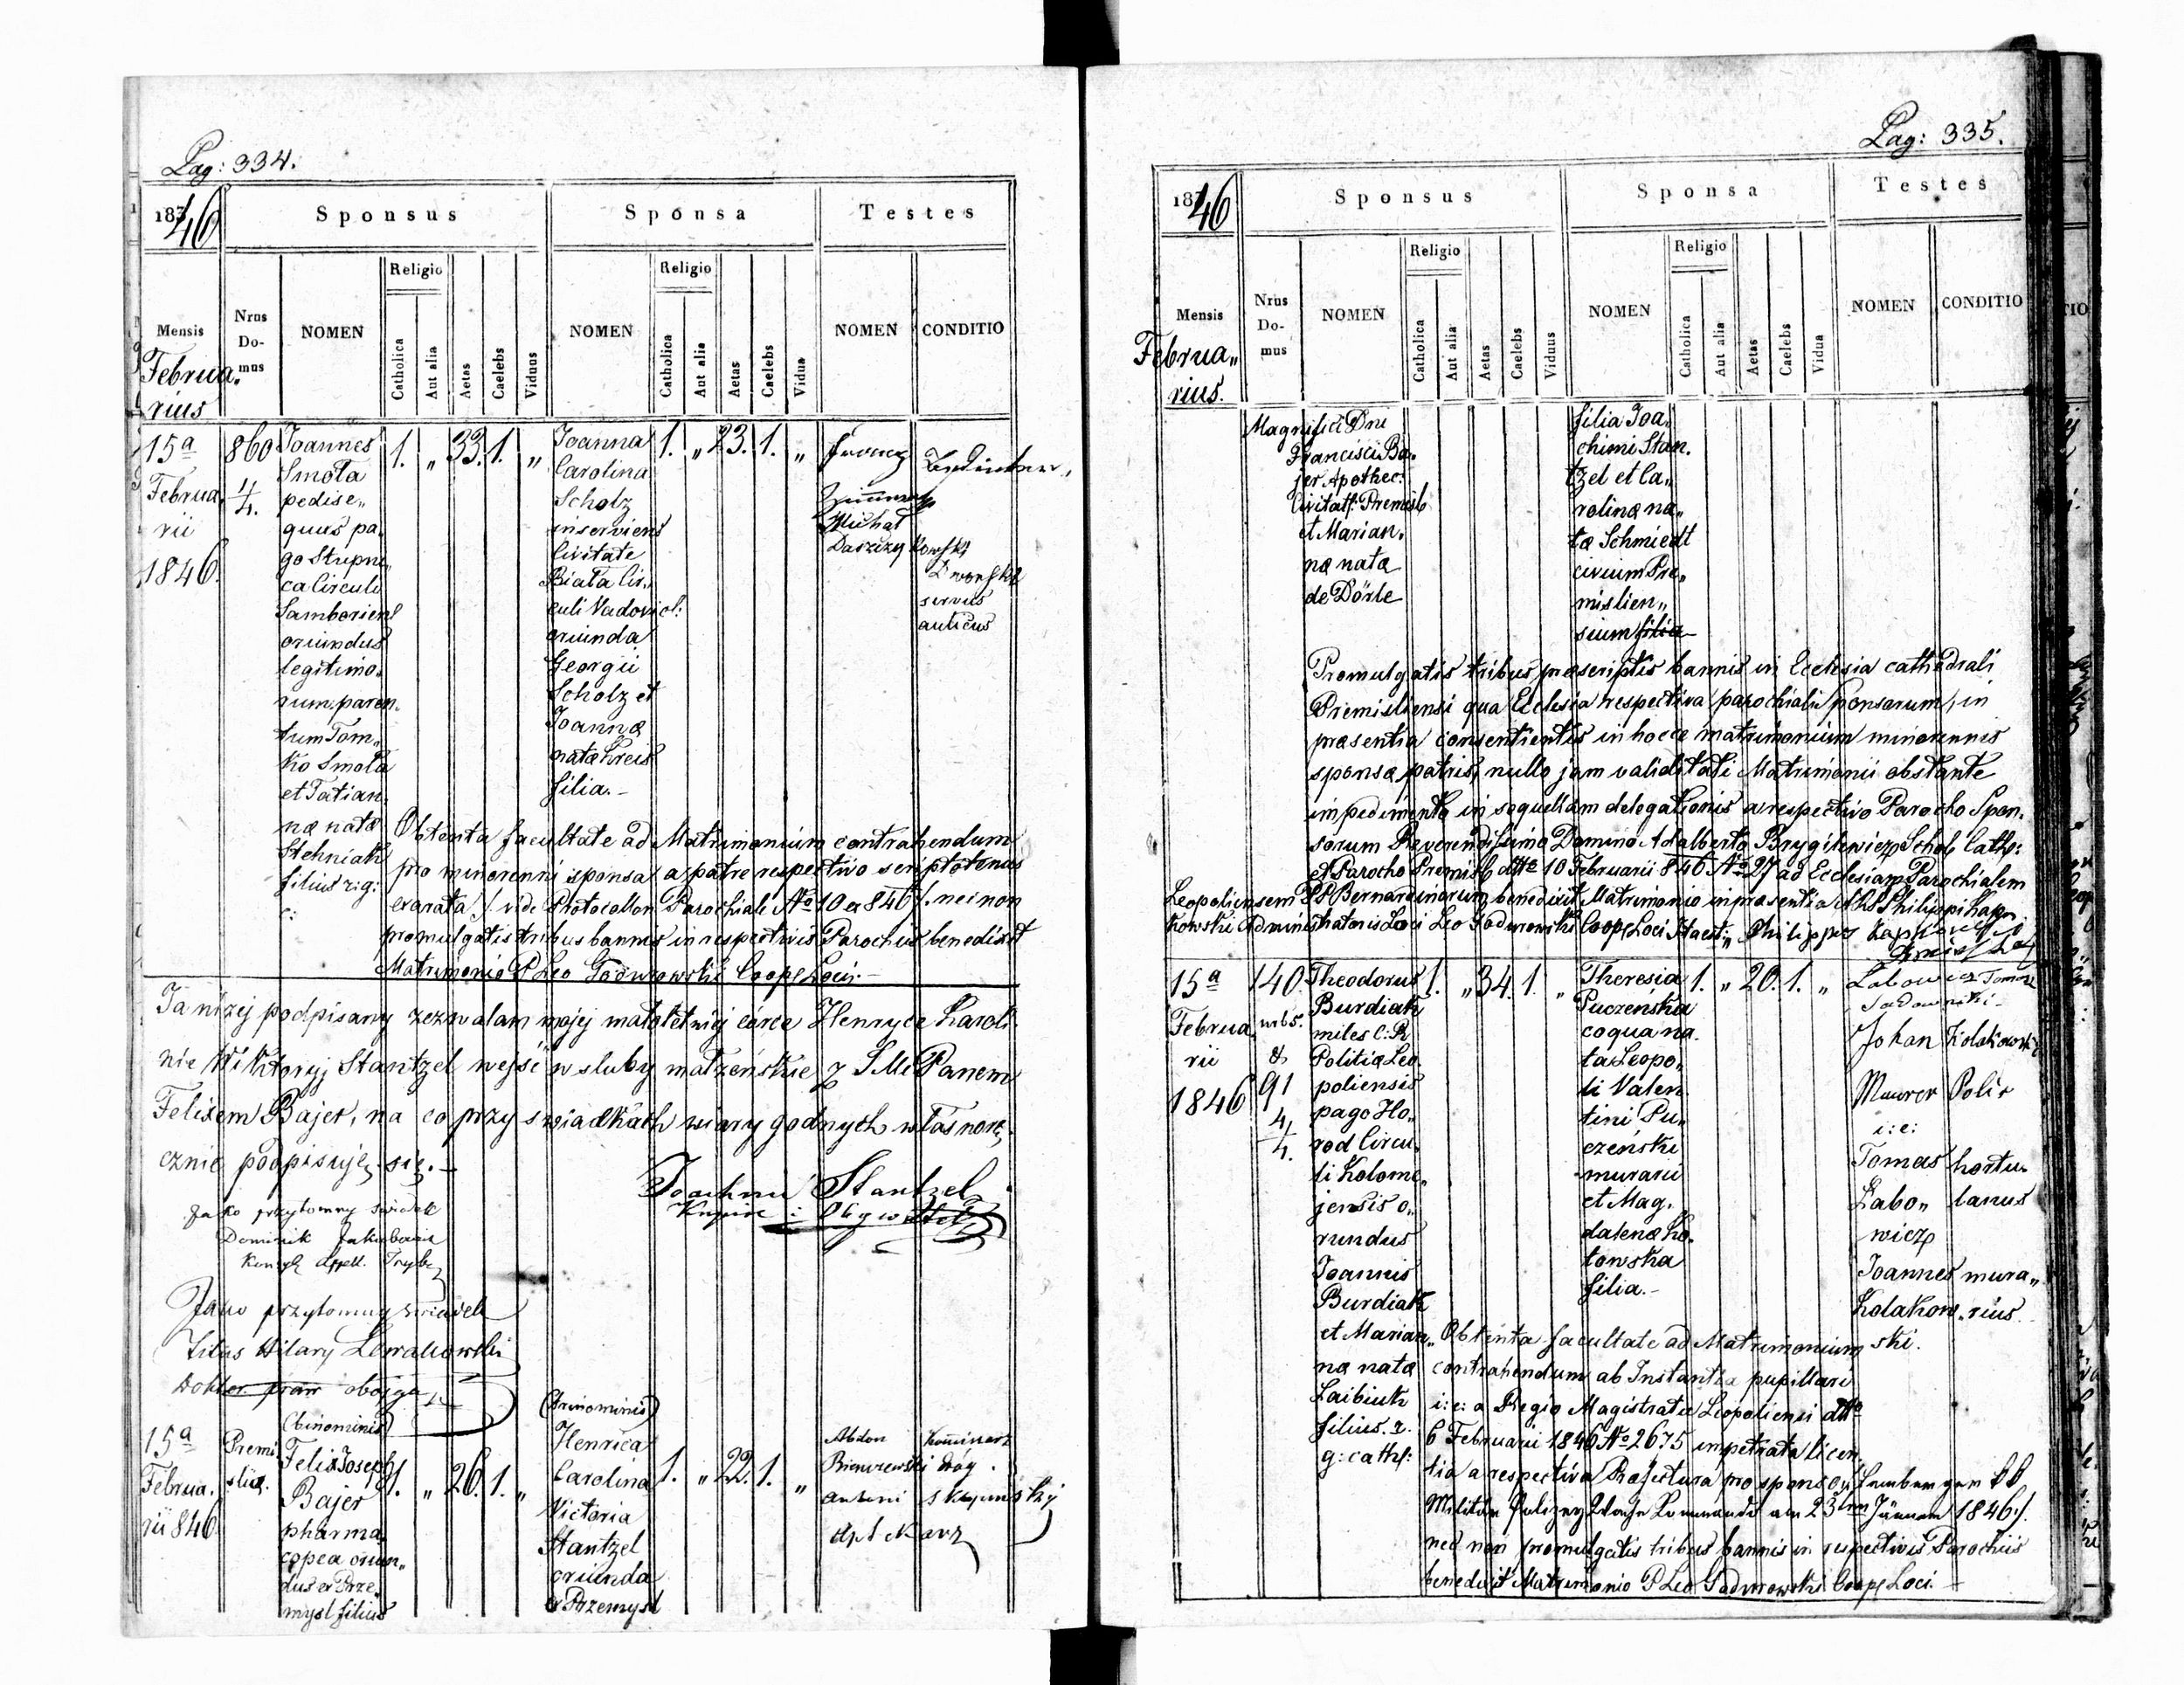 Pag: 334.
1846
Sponsus
Sponsa
Testes
Mensis
Nrus Do-mus
NOMEN
Religio
Catholica
Aut alia
Aetas
Caelebs
Viduus
NOMEN
Religio
Catholica
Aut alia
Aetas
Caelebs
Vidua
NOMEN
CONDITIO
Februa„
rius
15a
Februa„
rii
1846.
860
4/4.
Joannes
Smoła
pedise„
quus pa„
go Stupni„
ca Circuli
Samboriens
oriundus
legitimo„
rum paren„
tum Tom„
ko Smoła
et Tatian„
næ natæ
Stehniak
filius r: g:
c:
1. „ 33. 1. „
Joanna
Carolina
Scholz
inserviens
Civitate
Biała Cir„
culi Vadovic:
oriunda
Georgii
Scholz et
Joannæ
natæ Kreis
filia.-
1. „ 23. 1. „
Franz
Michał
Darzizy kowski
servus
aulicus
Obtenta facultate ad Matrimonium contrahendum
pro minorenni sponsa a patre respectivo scriptotenus
exarata /: vide Protocollon Parochiale No 10 ex 846 /: nec non
promulgatis tribus bannis in respectivis Parochiis benedixit
Matrimonio P Leo Godurowski Coop Loci.-
Ja niżej podpisany zezwalam mojej małoletniej córce Henryce Karoli„
nie Wiktoryj Stantzel wejść w sluby małżeńskie z JM Panem
Felixem Bajer, na co przy swiadkach wiary godnych własnorę„
cznie podpisuję się.-
Joachim Stantzel
Jako przytomny swiadek
Dominik Jakubowicz
Jako przytomny swiadek
Titus Hilary Lewakowski
Doktor praw obojga
15a
Februa„
rii 846
Premi
sliæ.
(binominis)
Felix Joseph
Bajer
pharma„
copea oriun„
dus ex Prze„
mysl filius
1. „ 26. 1. „
(trinominis)
Henrica
Carolina
Victoria
Stantzel
oriunda
ex Przemysl
1. „ 22. 1. „
Abdon
antoni
Apt ekarz
Pag: 335.
1846
Sponsus
Sponsa
Testes
Mensis
Nrus Do-mus
NOMEN
Religio
Catholica
Aut alia
Aetas
Caelebs
Viduus
NOMEN
Religio
Catholica
Aut alia
Aetas
Caelebs
Vidua
NOMEN
CONDITIO
Februa„
rius.
Magnifici Dni
Francisci Ba„
jer Apothec:
Civitat: Premisl
et Marian„
næ natæ
de Dörle
filia Joa„
chimi Stan„
tzel et Ca„
rolinæ na„
tæ Schmiedt
civium Pre„
mislien„
sium filia
Promulgatis tribus præscriptis bannis in Ecclesia cathedrali
Premisliensi qua Ecclesia respectiva parochiali sponsorum, in
præsentia consentientis in hocce matrimonium minorennis
sponsæ patris, nullo jam validitati Matrimonii obstante
impedimento in sequellam delegationis a respectivo Parocho Spon„
sorum Reverendissimo Domino Adalberto Brygikiewicz Schol: Cath:
et Parocho Premisl ddto 10 Februarii 846 No 27 ad Ecclesiam Parochialem
Leopoliensem PP Bernardinorum, benedixit Matrimonio in præsentia Philippi Kapn„
kowski Administratoris Loci Leo Godurowski Coop Loci Philippus
15a
Februa„
rii
1846
140.
nr b 5.
&
91
4/4.
Theodorus
Burdiak
miles C: R
Politiæ Leo„
poliensis
pago Ho„
rod Circu„
li Kolome„
jensis o„
rundus
Joannis
Burdiak
et Marian„
næ natæ
Laibiuk
filius. r.
g: cath:
1. „ 34. 1. „
Theresia
Puczeńska
coqua na„
ta Leopo„
li Valen„
tini Pu„
czeński
murarii
et Mag„
dalenæ Ko„
towska
filia.-
1. „ 20. 1. „
Labowicz Tomasz
Sadowniki
Johan Kolakowski
Maurer Polir
i: e:
Tomas hortu„
Labo„ lanus
wicz
Joannes mura„
Kolakow„ rius.
ski.
Obtenta facultate ad Matrimonium
contrahendum ab Instantia pupillari
i: e: a Regio Magistratu Leopoliensi ddto
6 Februarii 1846 No 2675 impetrata licen„
tia a respectiva Præfectura pro sponso /: Lemberger
Militär Polizey Wache Commando am 23ten Jänner 1846 /.
nec non promulgatis tribus bannis in respectivis Parochiis
benedixit Matrimonio P Leo Godurowski Coop Loci.-